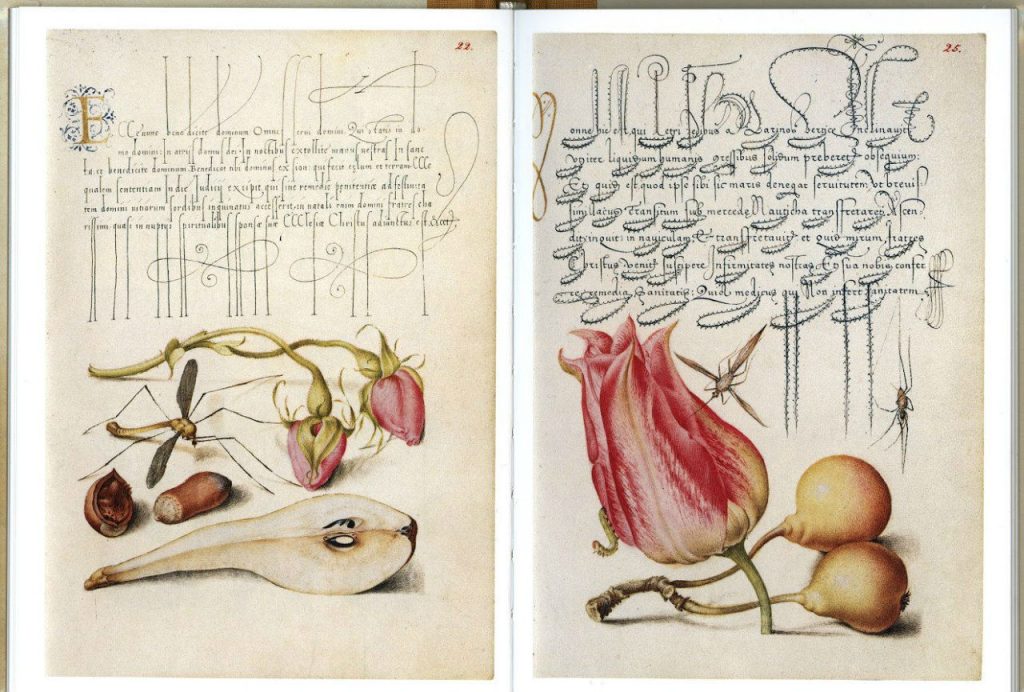 22.
E CCe nunc benedicite dominum Omnes serui domini. Qui statis in do-
mo domini: in atrijs domus dei. In noctibus extollite manus uestras in sanc
ta: et benedicite dominum. Benedicat nos dominus ex sion: qui fecit celum et terram
qualem sententiam in die Iudicij excipit, qui sine remedio penitentiae ad festiuita
tem domini vitiorum sordibus inquinatus accesserit, in natali enim domini fratre cha
rissimi quasi in nuptijs spiritualibus sponsae suae Christus adiunctus est.
25.
onne hic est qui Petri pedibus a Inclinauit
liquidum humanis gressibus solidum preberet obsequium:
Et quid est quod ipse sibi sic maris denegat seruitutem vt breuis-
simi lacus Transitum sub mercede Nauticha transfretaret Ascen-
dit inquit: in nauiculam: & transfretauit et Quid mirum fratres
Christus venit suscipere Infirmitates nostras Et sua nobis confer
re remedia Sanitatis: medicus qui Non infert sanitatem.